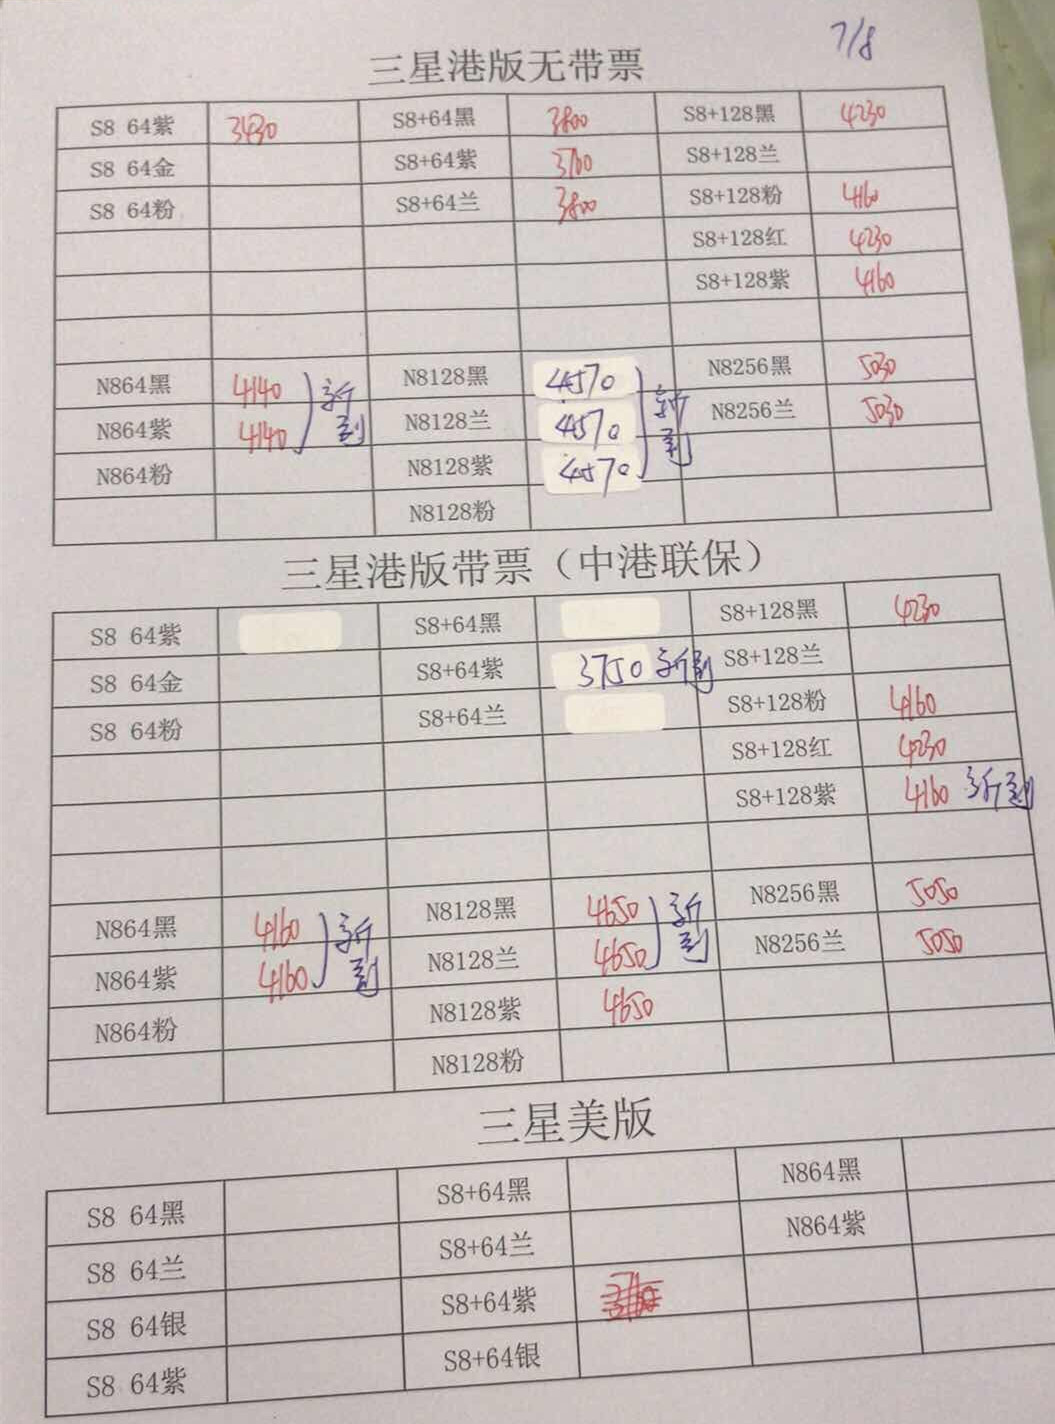 7/8
三星港版无带票
S8 64紫 3430 S8+64黑 3800 S8+128黑 4230
S8 64金 S8+64紫 3700 S8+128兰
S8 64粉 S8+64兰 3800 S8+128粉 4160
S8+128红 4230
S8+128紫 4160
N864黑 4140 新 N8128黑 4570 新 N8256黑 5030
N864紫 4140 到 N8128兰 4570 到 N8256兰 5030
N864粉 N8128紫 4570
N8128粉
三星港版带票（中港联保）
S8 64紫 S8+64黑 S8+128黑 4230
S8 64金 S8+64紫 3750 新到 S8+128兰
S8 64粉 S8+64兰 S8+128粉 4160
S8+128红 4230
S8+128紫 4160 新到
N864黑 4160 新 N8128黑 4650 新 N8256黑 5050
N864紫 4160 到 N8128兰 4650 到 N8256兰 5050
N864粉 N8128紫 4650
N8128粉
三星美版
S8 64黑 S8+64黑 N864黑
S8 64兰 S8+64兰 N864紫
S8 64银 S8+64紫
S8 64紫 S8+64银